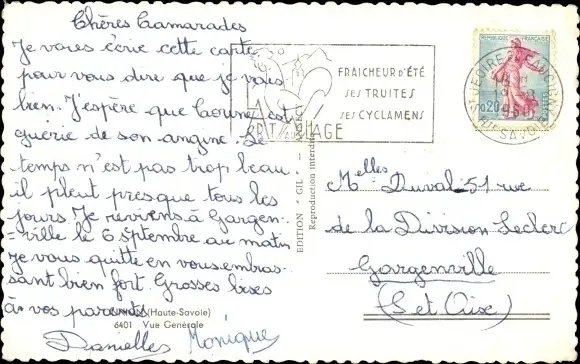 Chères Camarades
Je vous écris cette carte
pour vous dire que je vais
bien. J'espère que est
guérie de son angine. Le
temps n'est pas trop beau
il pleut presque tous les
jours Je reviens à Gargen-
=ville le 6 septembre au matin
Je vous quitte en vous embras-
sant bien fort. Grosses bises
à vos parents
(Haute-Savoie)
6401 Vue Générale
Danielles Monique
EDITION "GIL"
Reproduction interdite
FRAICHEUR D'ÉTÉ
SES TRUITES
SES CYCLAMENS
REPUBLIQUE FRANÇAISE
0,20
Melles Duval 51 rue
de la Division Leclerc
Gargenville
(S et Oise)